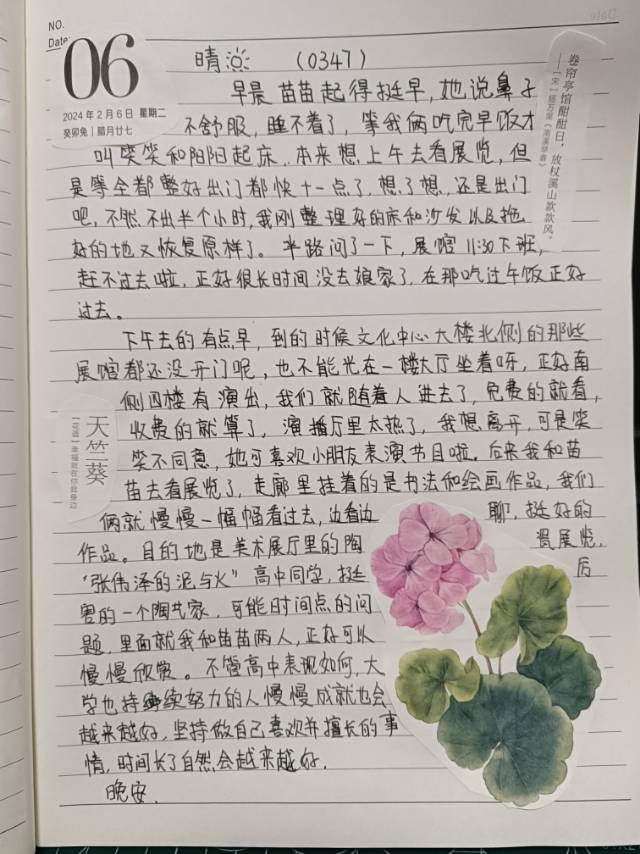 NO.
Date:
06
2024年2月6日 星期二
癸卯兔｜腊月廿七
晴 （0347）
卷帘亭馆酣酣日，放杖溪山款款风。
——【宋】杨万里《南溪早春》
早晨 苗苗起得挺早，她说鼻子
不舒服，睡不着了，等我俩吃完早饭才
叫笑笑和阳阳起床。本来想上午去看展览，但
是等全都整好出门都快十一点了，想了想，还是出门
吧，不然不出半个小时，我刚整理好的床和沙发以及拖
好的地又恢复原样了。半路问了一下，展馆11:30下班，
赶不过去啦，正好很长时间没去娘家了，在那吃过午饭正好
过去。
下午去的有点早，到的时候文化中心大楼北侧的那些
展馆都还没开门呢，也不能光在一楼大厅坐着呀，正好南
侧四楼有演出，我们就随着人进去了，免费的就看，
收费的就算了，演播厅里太热了，我想离开，可是笑
笑不同意，她可喜欢小朋友表演节目啦。后来我和苗
苗去看展览了，走廊里挂着的是书法和绘画作品，我们
俩就慢慢一幅幅看过去，边看边聊，挺好的
作品。目的地是美术展厅里的陶瓷展览，
“张伟泽的泥与火”高中同学，挺 后
害的一个陶艺家，可能时间点的问
题，里面就我和苗苗两人，正好可以
慢慢欣赏。不管高中表现如何，大
学也持续努力的人慢慢成就也会
越来越好，坚持做自己喜欢并擅长的事
情，时间长了自然会越来越好。
晚安。
天竺葵
【花语】幸福就在你身边